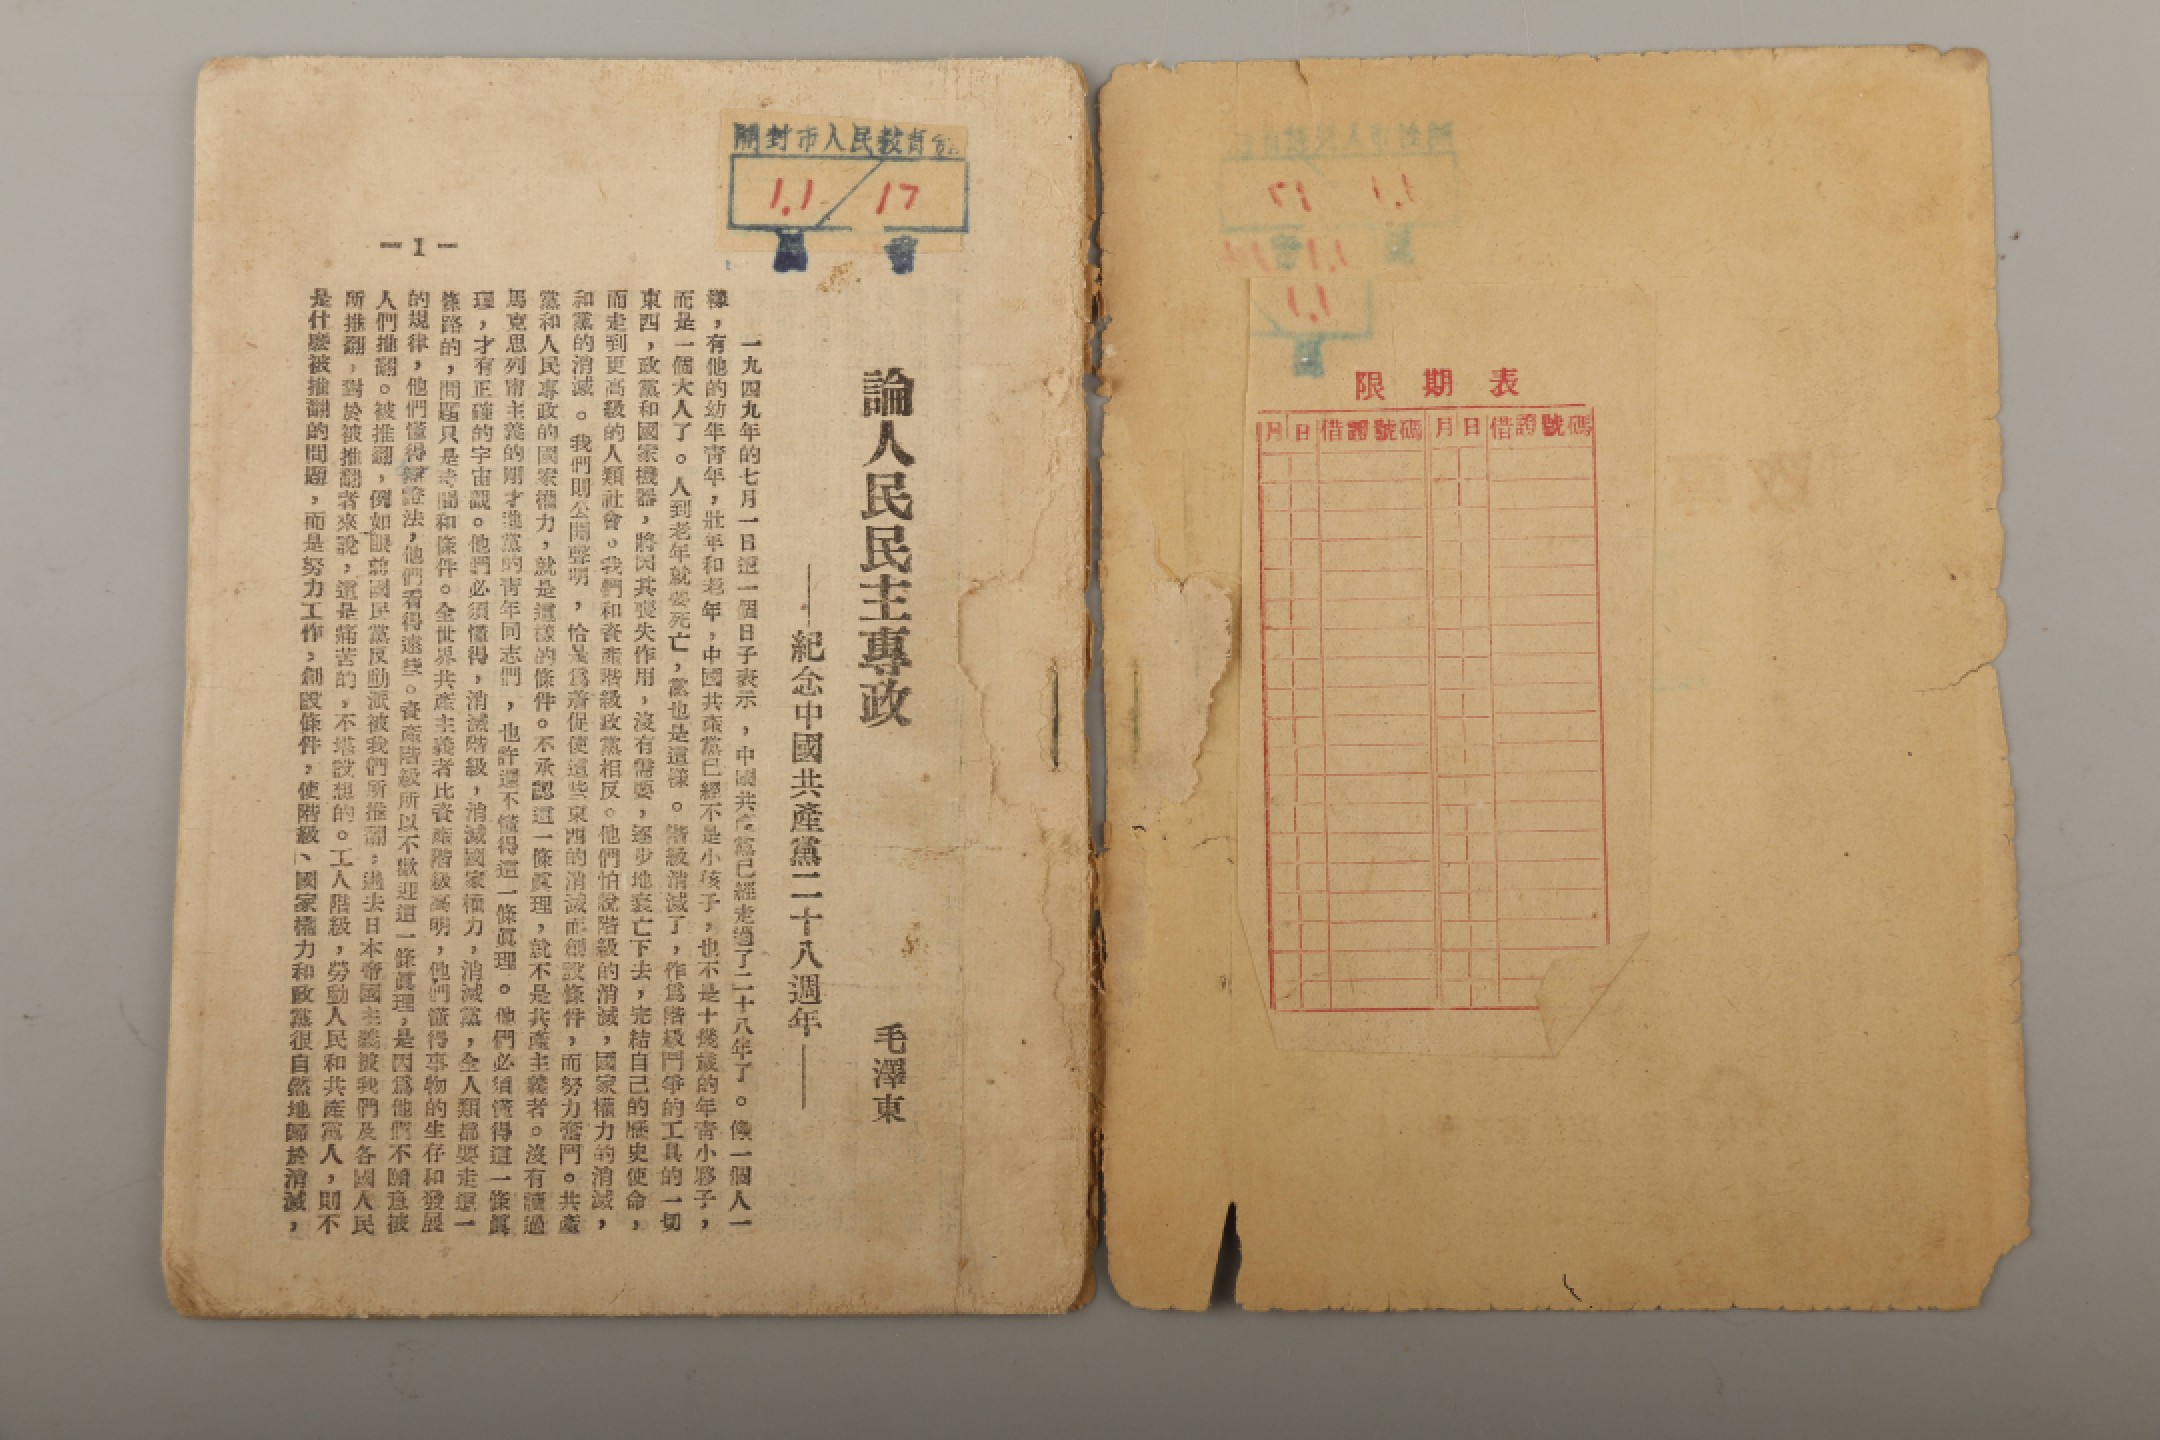 開封市人民教育館
1.1 / 17
圖 書
論人民民主專政
毛澤東
——紀念中國共產黨二十八週年——
一九四九年的七月一日這一個日子表示，中國共產黨已經走過了二十八年了。像一個人一
樣，有他的幼年青年，壯年和老年，中國共產黨已經不是小孩子，也不是十幾歲的年青小夥子，
而是一個大人了。人到老年就要死亡，黨也是這樣。階級消滅了，作爲階級鬥爭的工具的一切
東西，政黨和國家機器，將因其喪失作用，沒有需要，逐步地衰亡下去，完結自己的歷史使命，
而走到更高級的人類社會。我們和資產階級政黨相反。他們怕說階級的消滅，國家權力的消滅，
和黨的消滅。我們則公開聲明，恰是爲着促使這些東西的消滅而創設條件，而努力奮鬥。共產
黨和人民專政的國家權力，就是這樣的條件。不承認這一條眞理，就不是共產主義者。沒有讀過
馬克思列甯主義的剛才進黨的青年同志們，也許還不懂得這一條眞理。他們必須懂得這一條眞
理，才有正確的宇宙觀。他們必須懂得，消滅階級，消滅國家權力，消滅黨，全人類都要走這一
條路的，問題只是時間和條件。全世界共產主義者比資產階級高明，他們懂得事物的生存和發展
的規律，他們懂得辯證法，他們看得遠些。資產階級所以不歡迎這一條眞理，是因爲他們不願意被
人們推翻。被推翻，例如眼前國民黨反動派被我們所推翻，過去日本帝國主義被我們及各國人民
所推翻，對於被推翻者來說，這是痛苦的，不堪設想的。工人階級，勞動人民和共產黨人，則不
是什麼被推翻的問題，而是努力工作，創設條件，使階級、國家權力和政黨很自然地歸於消滅，
—1—
限期表
月 日 借證號碼 月 日 借證號碼